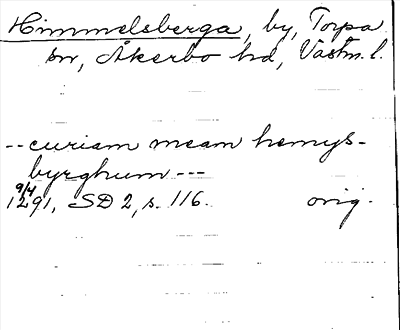 Himmelsberga, by, Torpa
sn, Åkerbo hd, Västm. l.
-- curiam meam hemys-
byrghum ---
9/4
1291, SD 2, s. 116. orig.